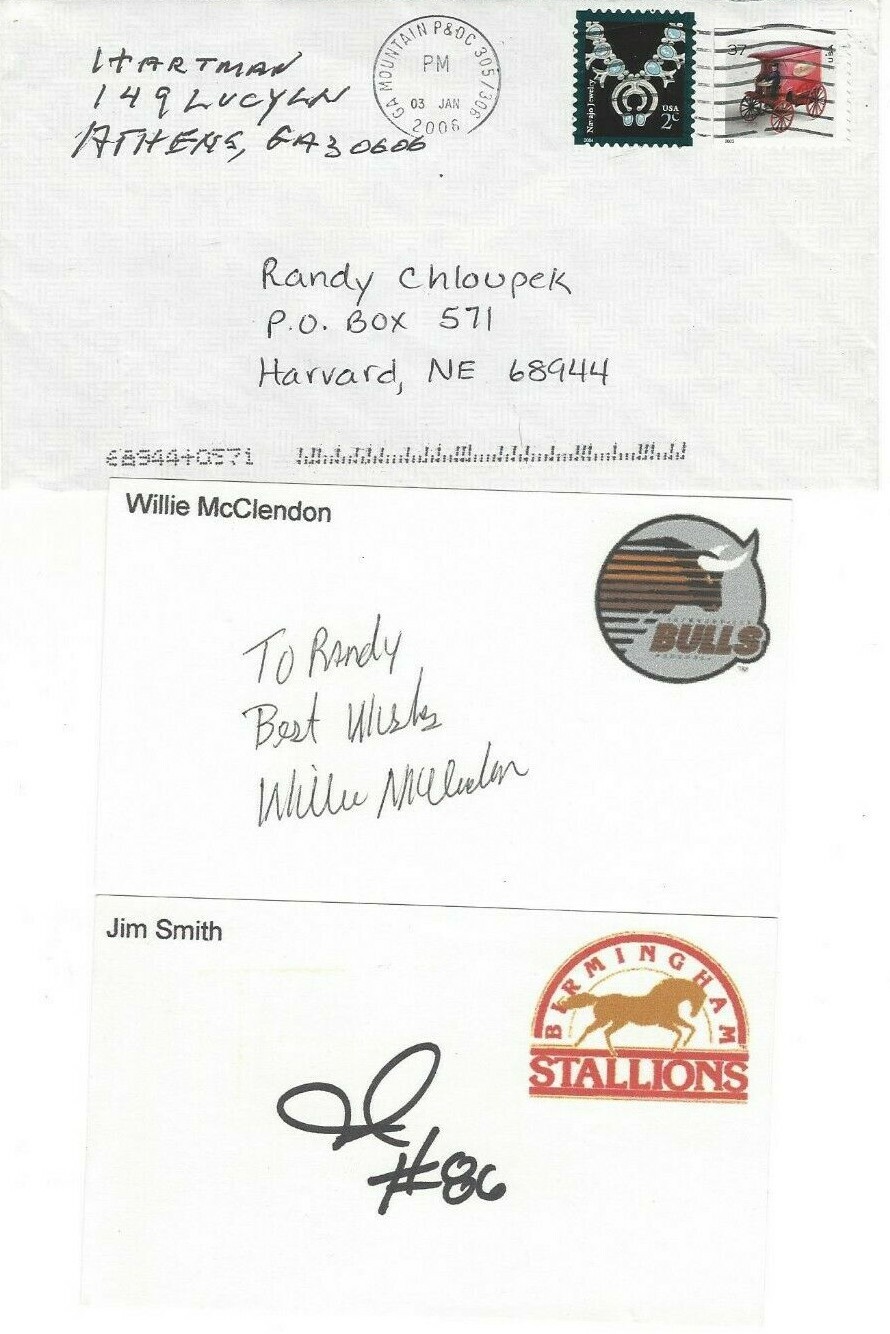 HARTMAN
149 LUCY LN
ATHENS, GA 30606
GA MOUNTAIN P&DC 305/306
PM
03 JAN
2006
Navajo Jewelry
USA
2c
2004
37
USA
Randy Chloupek
P.O. BOX 571
Harvard, NE 68944
68944+0571
Willie McClendon
BULLS
TM
To Randy
Best Wishes
Willie McClendon
Jim Smith
BIRMINGHAM
STALLIONS
#86